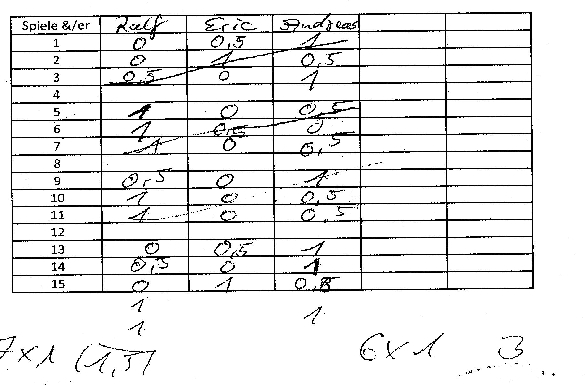 Spiele &/er Ralf Eric Andreas
1 0 0,5 1
2 0 1 0,5
3 0,5 0 1
4
5 1 0 0,5
6 1 0,5 0
7 1 0 0,5
8
9 0,5 0 1
10 1 0 0,5
11 1 0 0,5
12
13 0 0,5 1
14 0,5 0 1
15 0 1 0,5
1 1
1
7x1 (1,5) 6x1 3